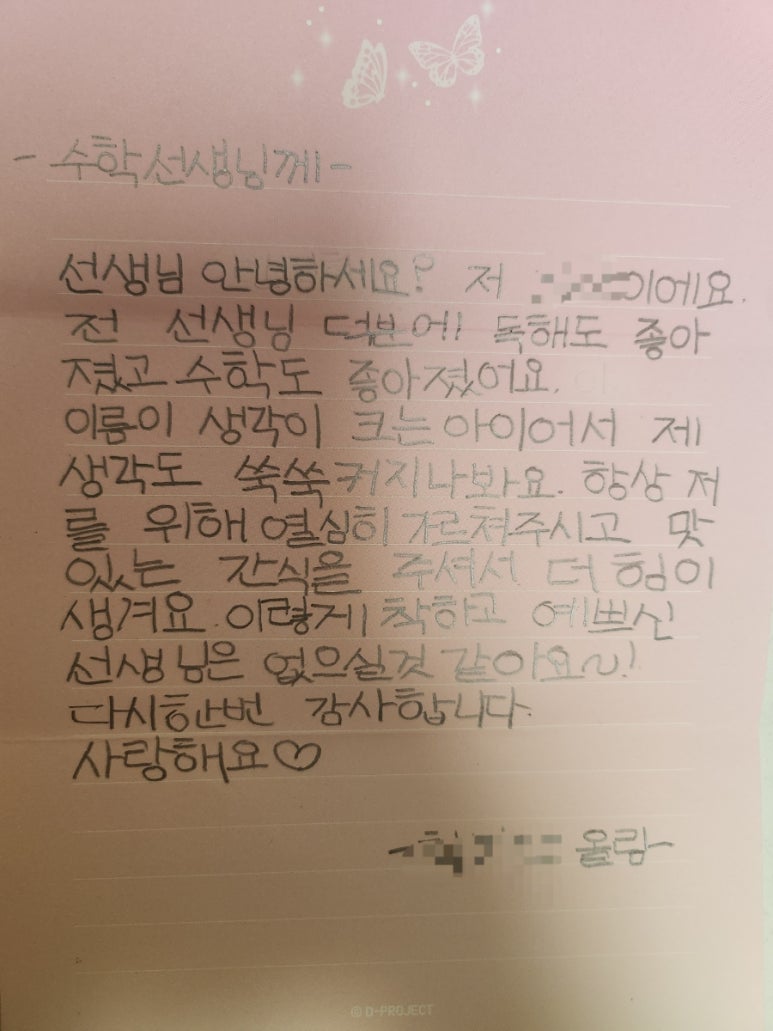 - 수학선생님께 -
선생님 안녕하세요? 저 이에요.
전 선생님 덕분에 독해도 좋아
졌고 수학도 좋아졌어요.
이름이 생각이 크는 아이어서 제
생각도 쑥쑥커지나봐요. 항상 저
를 위해 열심히 가르쳐주시고 맛
있는 간식을 주셔서 더 힘이
생겨요. 이렇게 착하고 예쁘신
선생님은 없으실것 같아요~!
다시한번 감사합니다.
사랑해요♡
- 올림-
© D-PROJECT